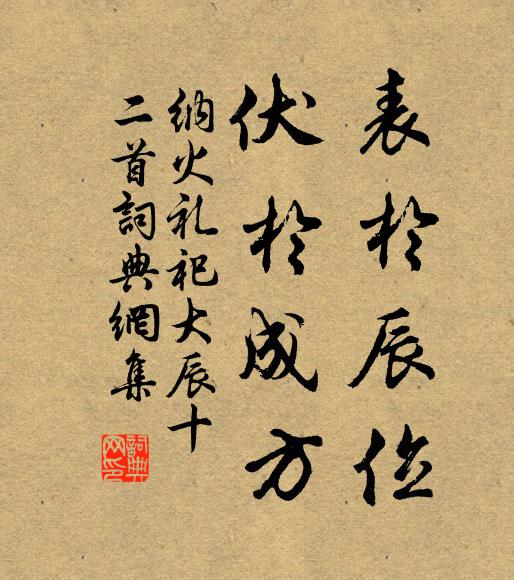 表於辰位
伏於成方
纳火礼祀大辰十
二首詞典網集
詞典
网印